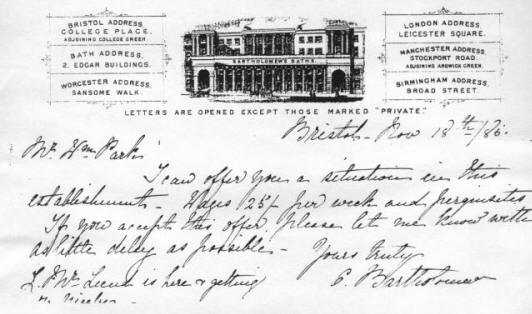 BRISTOL ADDRESS.
COLLEGE PLACE.
ADJOINING COLLEGE GREEN.
BATH ADDRESS.
2. EDGAR BUILDINGS.
WORCESTER ADDRESS.
SANSOME WALK.
BARTHOLOMEW'S BATHS.
LONDON ADDRESS.
LEICESTER SQUARE.
MANCHESTER ADDRESS.
STOCKPORT ROAD.
ADJOINING ARDWICK GREEN.
BIRMINGHAM ADDRESS.
BROAD STREET.
LETTERS ARE OPENED EXCEPT THOSE MARKED "PRIVATE."
Bristol- Nov 18th/86.
Mr Wm Park
I can offer you a situation in this
establishment - Wages 25/- per week and perquisites
If you accept this offer please let me know with
as little delay as possible -
Yours truly
C. Bartholomew
is here & getting